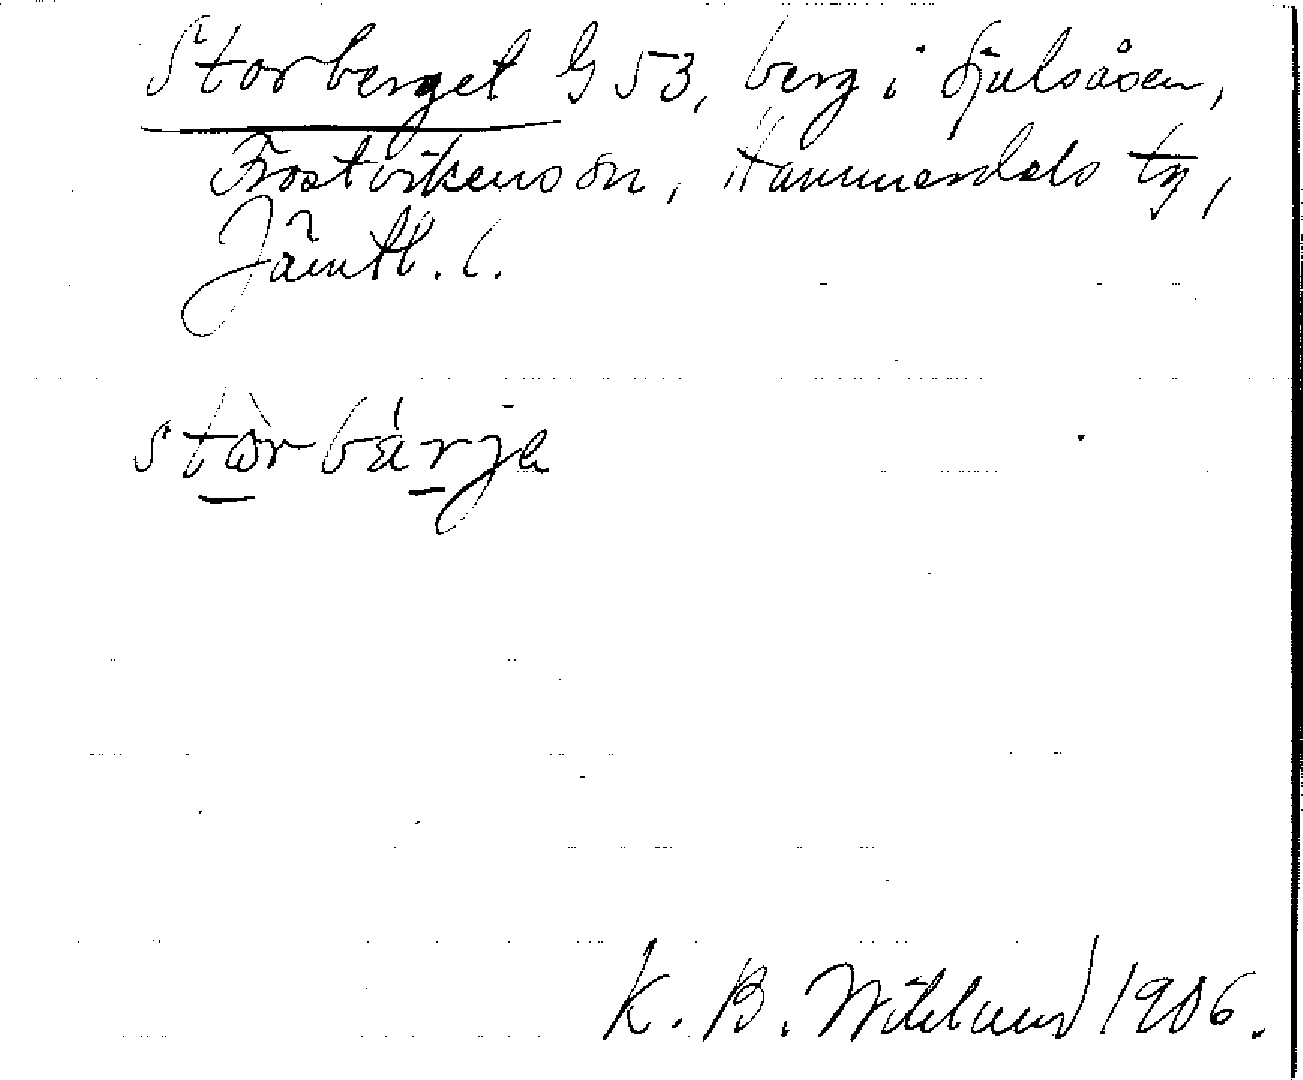 Storberget G 53, berg i Sjulsåsen,
Frostvikens sn, Hammerdals tg,
Jämtl. l.
stòrbä́rja
K. B. Wiklund 1906.